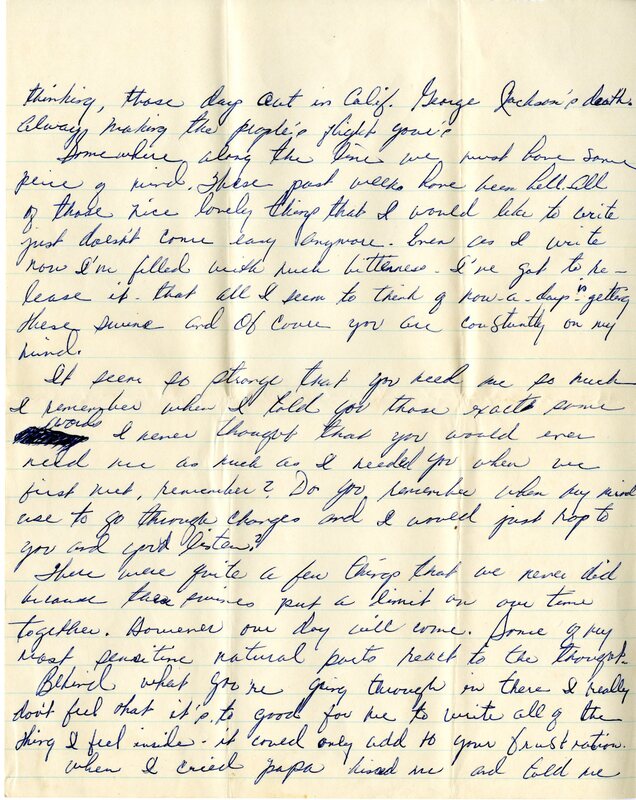 thinking, those days out in Calif. George Jackson's death
always making the people's flight your's
Somewhere along the line we must have some
peice of mind. These past weeks have been hell. All
of those nice lovely things that I would like to write
just doesn't come easy anymore. Even as I write
now I'm filled with such bitterness. I've got to re-
lease it. that all I seem to think of now-a-days is getting
these swine and Of couse you are constantly on my
mind.
It seem so strange that you need me so much
I remember when I told you those exact some
words I never thought that you would ever
need me as much as I needed you when we
first met, remember? Do you remember when my mind
use to go through changes and I would just rap to
you and you'd listen?
There were quite a few things that we never did
because these swines put a limit on our time
together. However our day will come. Some of my
most sensitive natural parts react to the thought.
Behind what you're going through in there I really
don't feel that it's to good for me to write all of the
thing I feel inside. it could only add to your frustration.
when I cried papa kissed me and told me